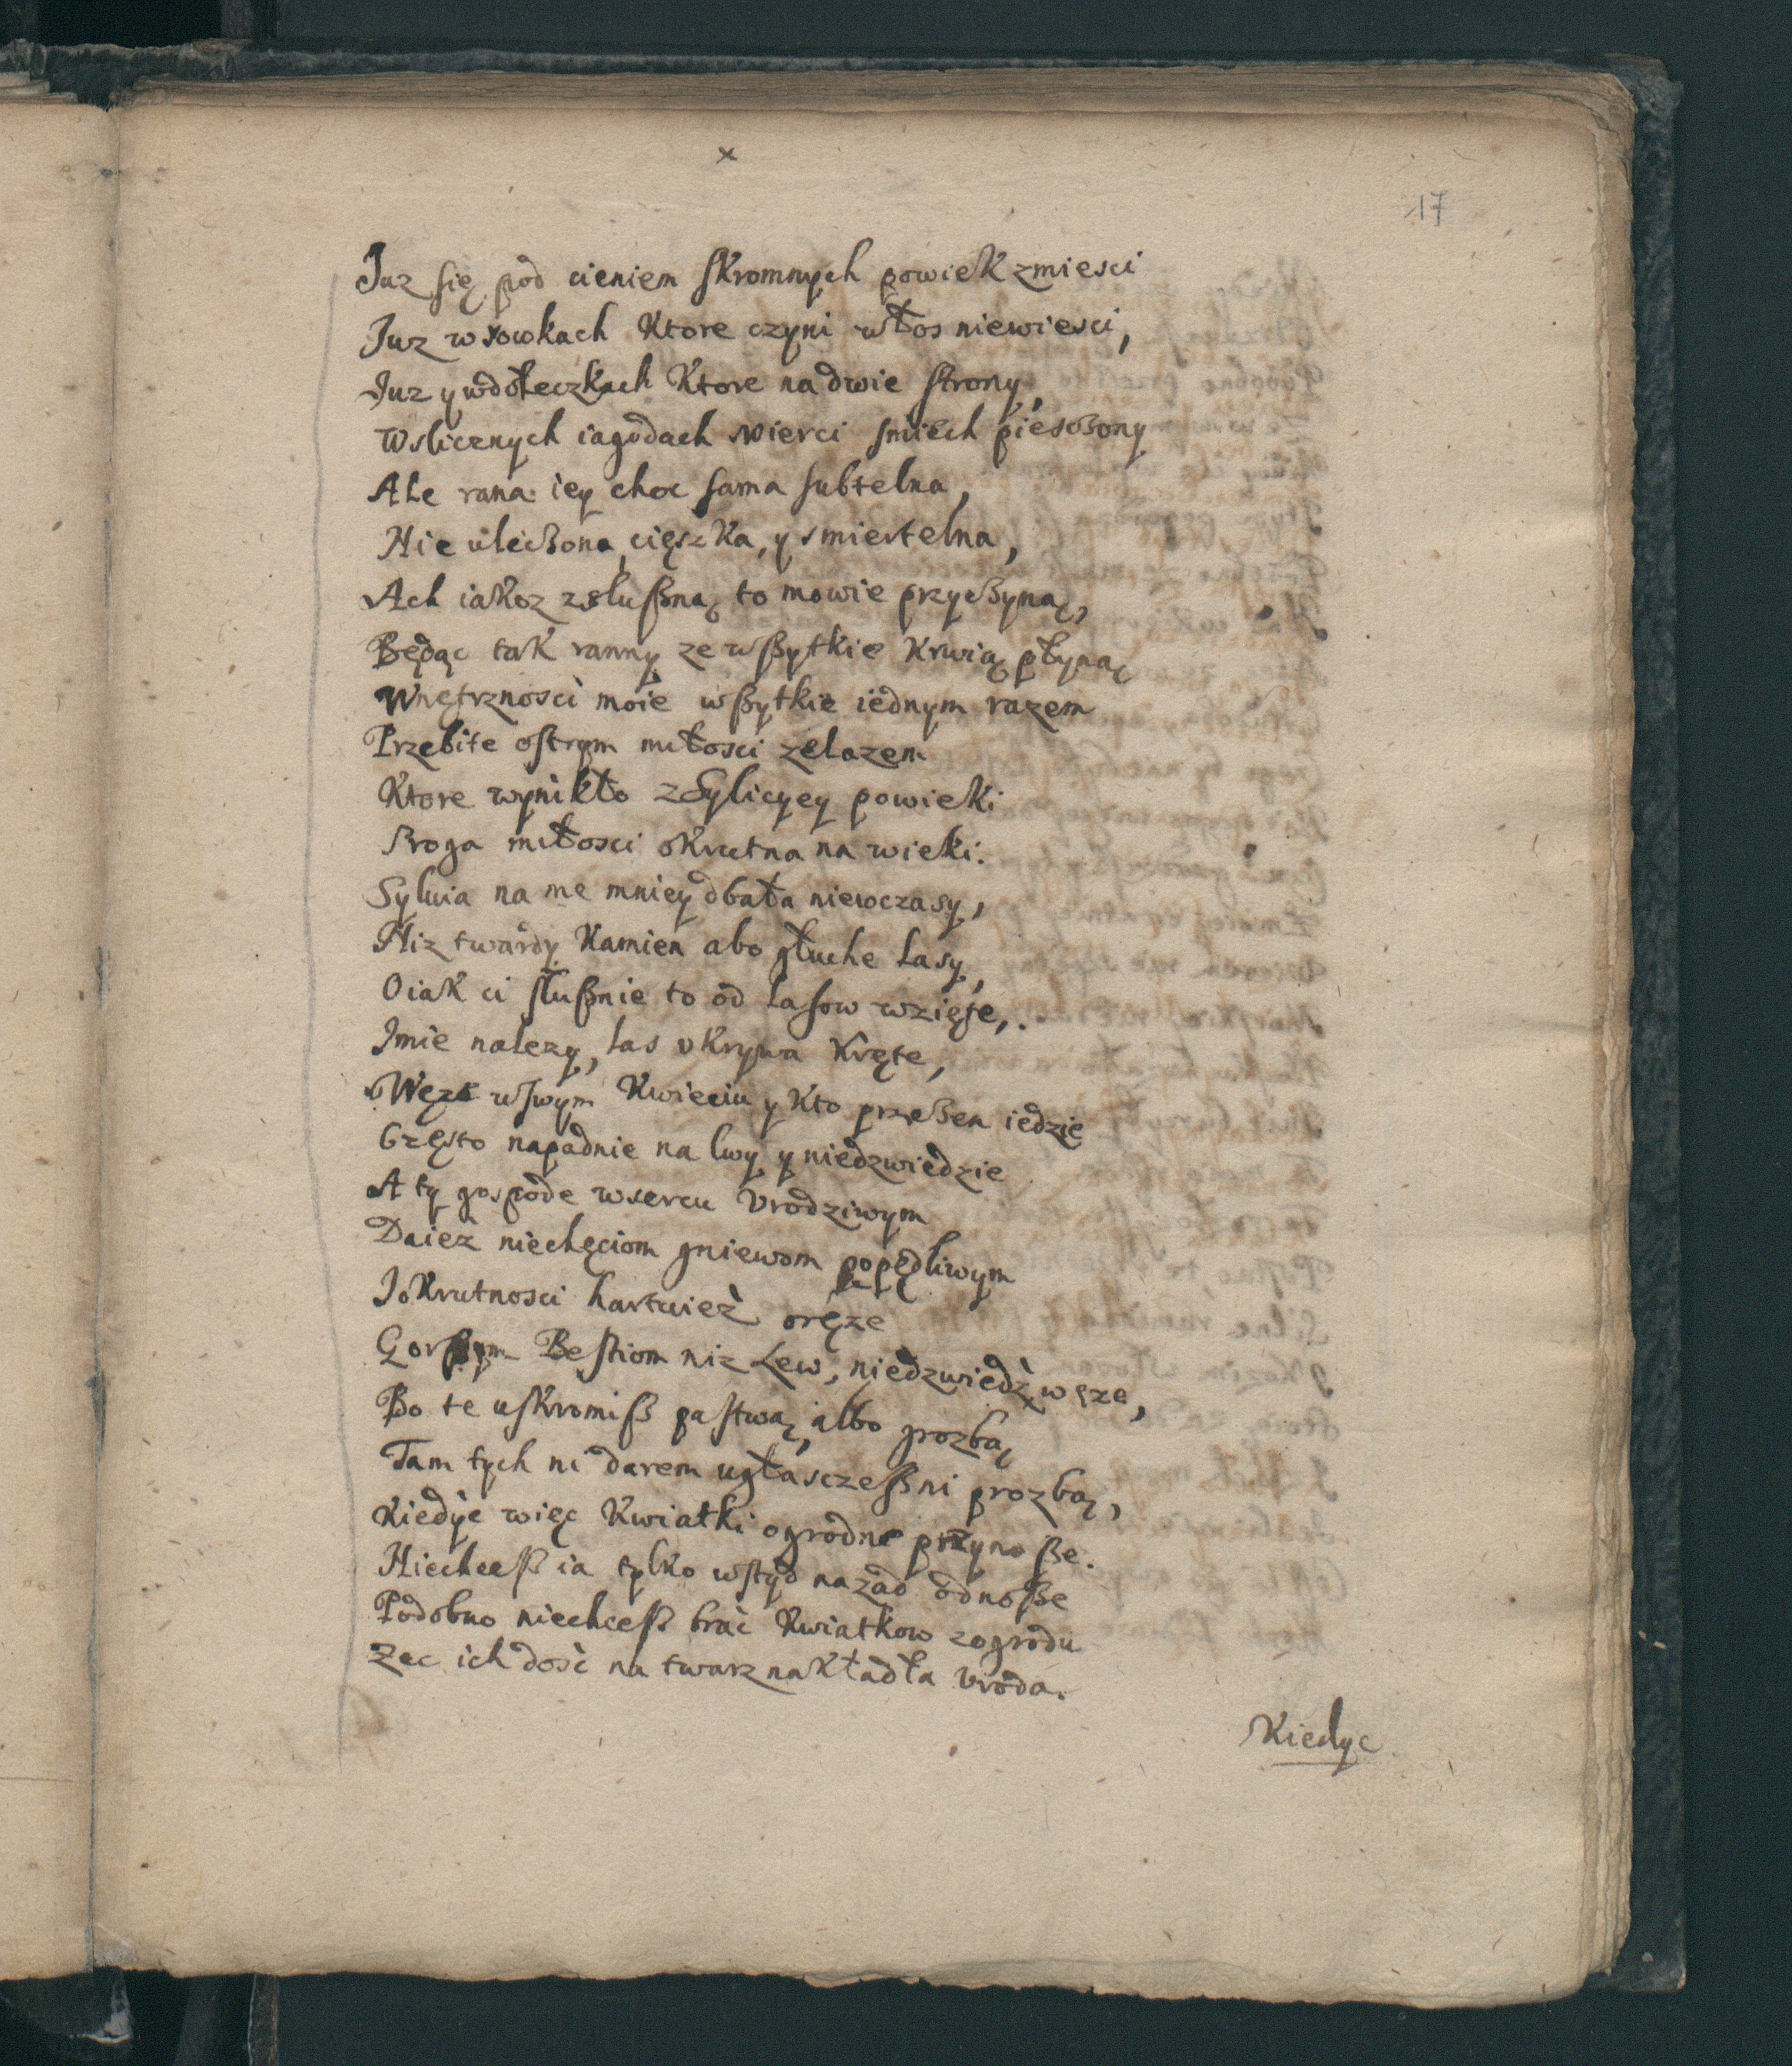 x
17
Juz się pod cieniem skromnych powiek zmiesci
Juz w rowkach Ktore czyni włos niewiesci,
Juz y wdołeczkach Ktore na dwie strony,
Wslicznych iagodach wierci smiech piesczony
Ale rana iey choc sama subtelna,
Nie uleczona, cięszka, y smiertelna,
Ach iakoz zsłußną to mowie przyczyną,
Będąc tak ranny ze wßytkie Krwią płyną
Wnętrznosci moie wßytkie iednym razem
Przebite ostrym miłosci zelazem
Ktore wynikło z Sylicyey powieki
Sroga miłosci okrutna na wieki.
Sylwia na me mniey dbała niewczasy,
Niz twardy Kamien abo głuche lasy,
O iak ci słußnie to od lasow wzięte,.
Jmie nalezy, las vkrywa Kręte,
Węze wswym Kwieciu y Kto przeßen iedzie
Często napadnie na lwy y niedzwiedzie
A ty gospode wsercu Vrodziwym
Daiez niechęciom gniewom popędliwym
J okrutnosci hartuiez oręze
Gorßym Bestiom niz Lew, niedzwiedz węze,
Bo te uskromiß pastwą, albo grozbą
Tam tych ni darem ugłasczeß ni prozbą,
Kiedyc więc Kwiatki ogrodne przynoße.
Niechceß ia tylko wstyd nazad odnoße
Podobno niechceß brac Kwiatkow zogrodu
Zec ich dosc na twarz nakładła Vroda.
Kiedyc